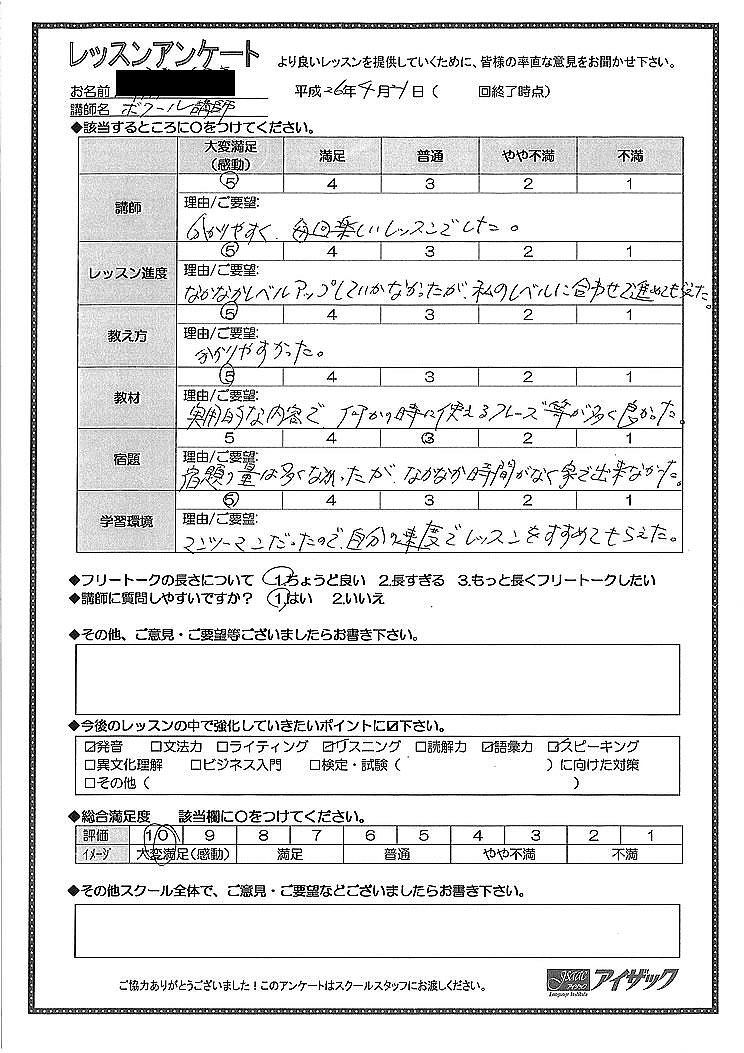 レッスンアンケート より良いレッスンを提供していくために、皆様の率直な意見をお聞かせ下さい。
お名前 平成26年4月21日( 回終了時点)
講師名 ポクール講師
◆該当するところに○をつけてください。
大変満足(感動) 満足 普通 やや不満 不満
講師 5 4 3 2 1
理由/ご要望:
分かりやすく、毎回楽しいレッスンでした。
レッスン進度 5 4 3 2 1
理由/ご要望:
なかなかレベルアップしていかなかったが、私のレベルに合わせて進めてもらえた。
教え方 5 4 3 2 1
理由/ご要望:
分かりやすかった。
教材 5 4 3 2 1
理由/ご要望:
実用的な内容で、何かの時に使えるフレーズ等が多く良かった。
宿題 5 4 3 2 1
理由/ご要望:
宿題の量は多くなかったが、なかなか時間がなく家で出来なかった。
学習環境 5 4 3 2 1
理由/ご要望:
マンツーマンだったので、自分の速度でレッスンをすすめてもらえた。
◆フリートークの長さについて 1.ちょうど良い 2.長すぎる 3.もっと長くフリートークしたい
◆講師に質問しやすいですか? 1.はい 2.いいえ
◆その他、ご意見・ご要望等ございましたらお書き下さい。
◆今後のレッスンの中で強化していきたいポイントに☑下さい。
☑発音 □文法力 □ライティング ☑リスニング □読解力 ☑語彙力 ☑スピーキング
□異文化理解 □ビジネス入門 □検定・試験( )に向けた対策
□その他( )
◆総合満足度 該当欄に○をつけてください。
評価 10 9 8 7 6 5 4 3 2 1
イメージ 大変満足(感動) 満足 普通 やや不満 不満
◆その他スクール全体で、ご意見・ご要望などございましたらお書き下さい。
ご協力ありがとうございました!このアンケートはスクールスタッフにお渡しください。
アイザック
Language Institute